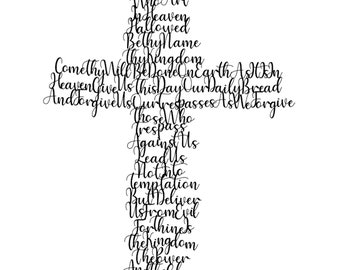 Who Art
In Heaven
Hallowed
Be thy Name
Thy Kingdom
Come thy Will Be Done On Earth As It Is In
Heaven Give Us This Day Our Daily Bread
And Forgive Us Our trespasses As We Forgive
Those Who
Trespass
Against Us
Lead Us
Not Into
Temptation
But Deliver
Us From Evil
For thine Is
the Kingdom
the Power
And the Glory